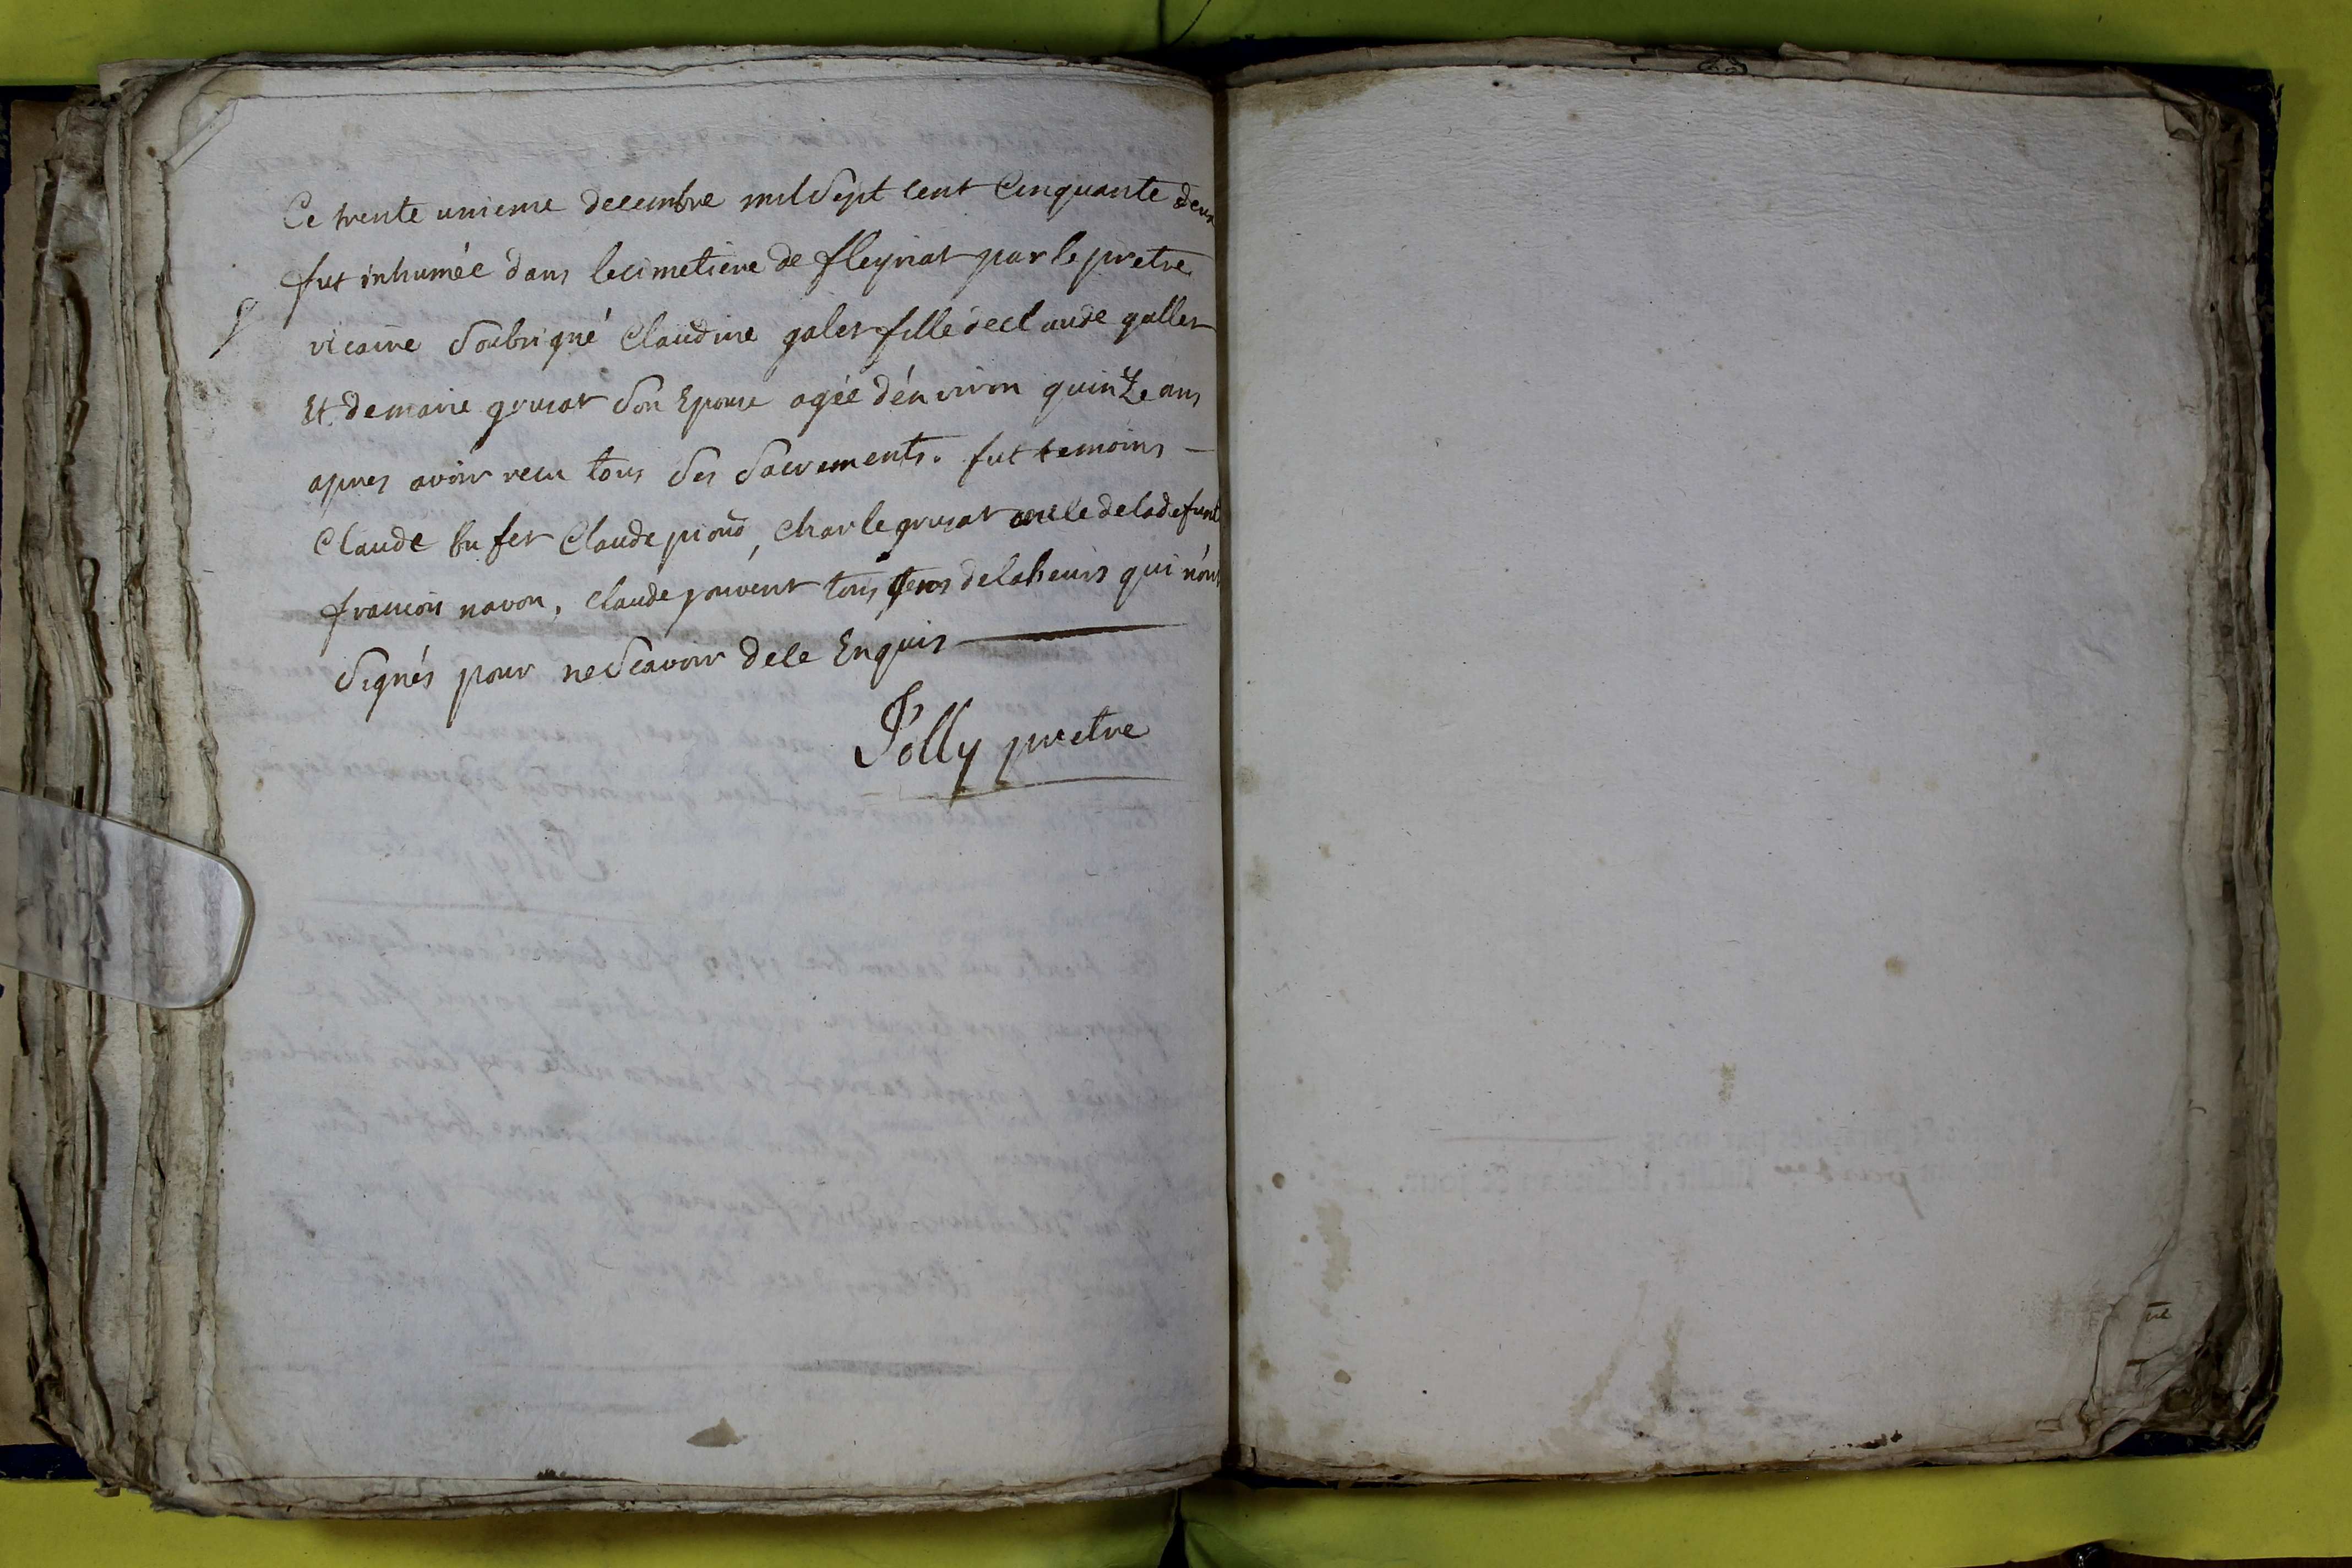 Ce trente unieme decembre mil Sept cent Cinquante deux
fut inhumée dans le cimetiere de fleyriat par le pretre
vicaire Soubsigné Claudine galet fille de claude gallet
Et de marie grusat Son Epouse agée d'én viron quinze ans
apres avoir recu tous Ses Sacrements. fut temoins
Claude bu fet Claude pioud, Charle grusat oncle de la defunt
francois navon, Claude pouvent tous gens de labeurs qui n'ont
Signés pour ne Scavoir de ce Enquis
Jolly pretre